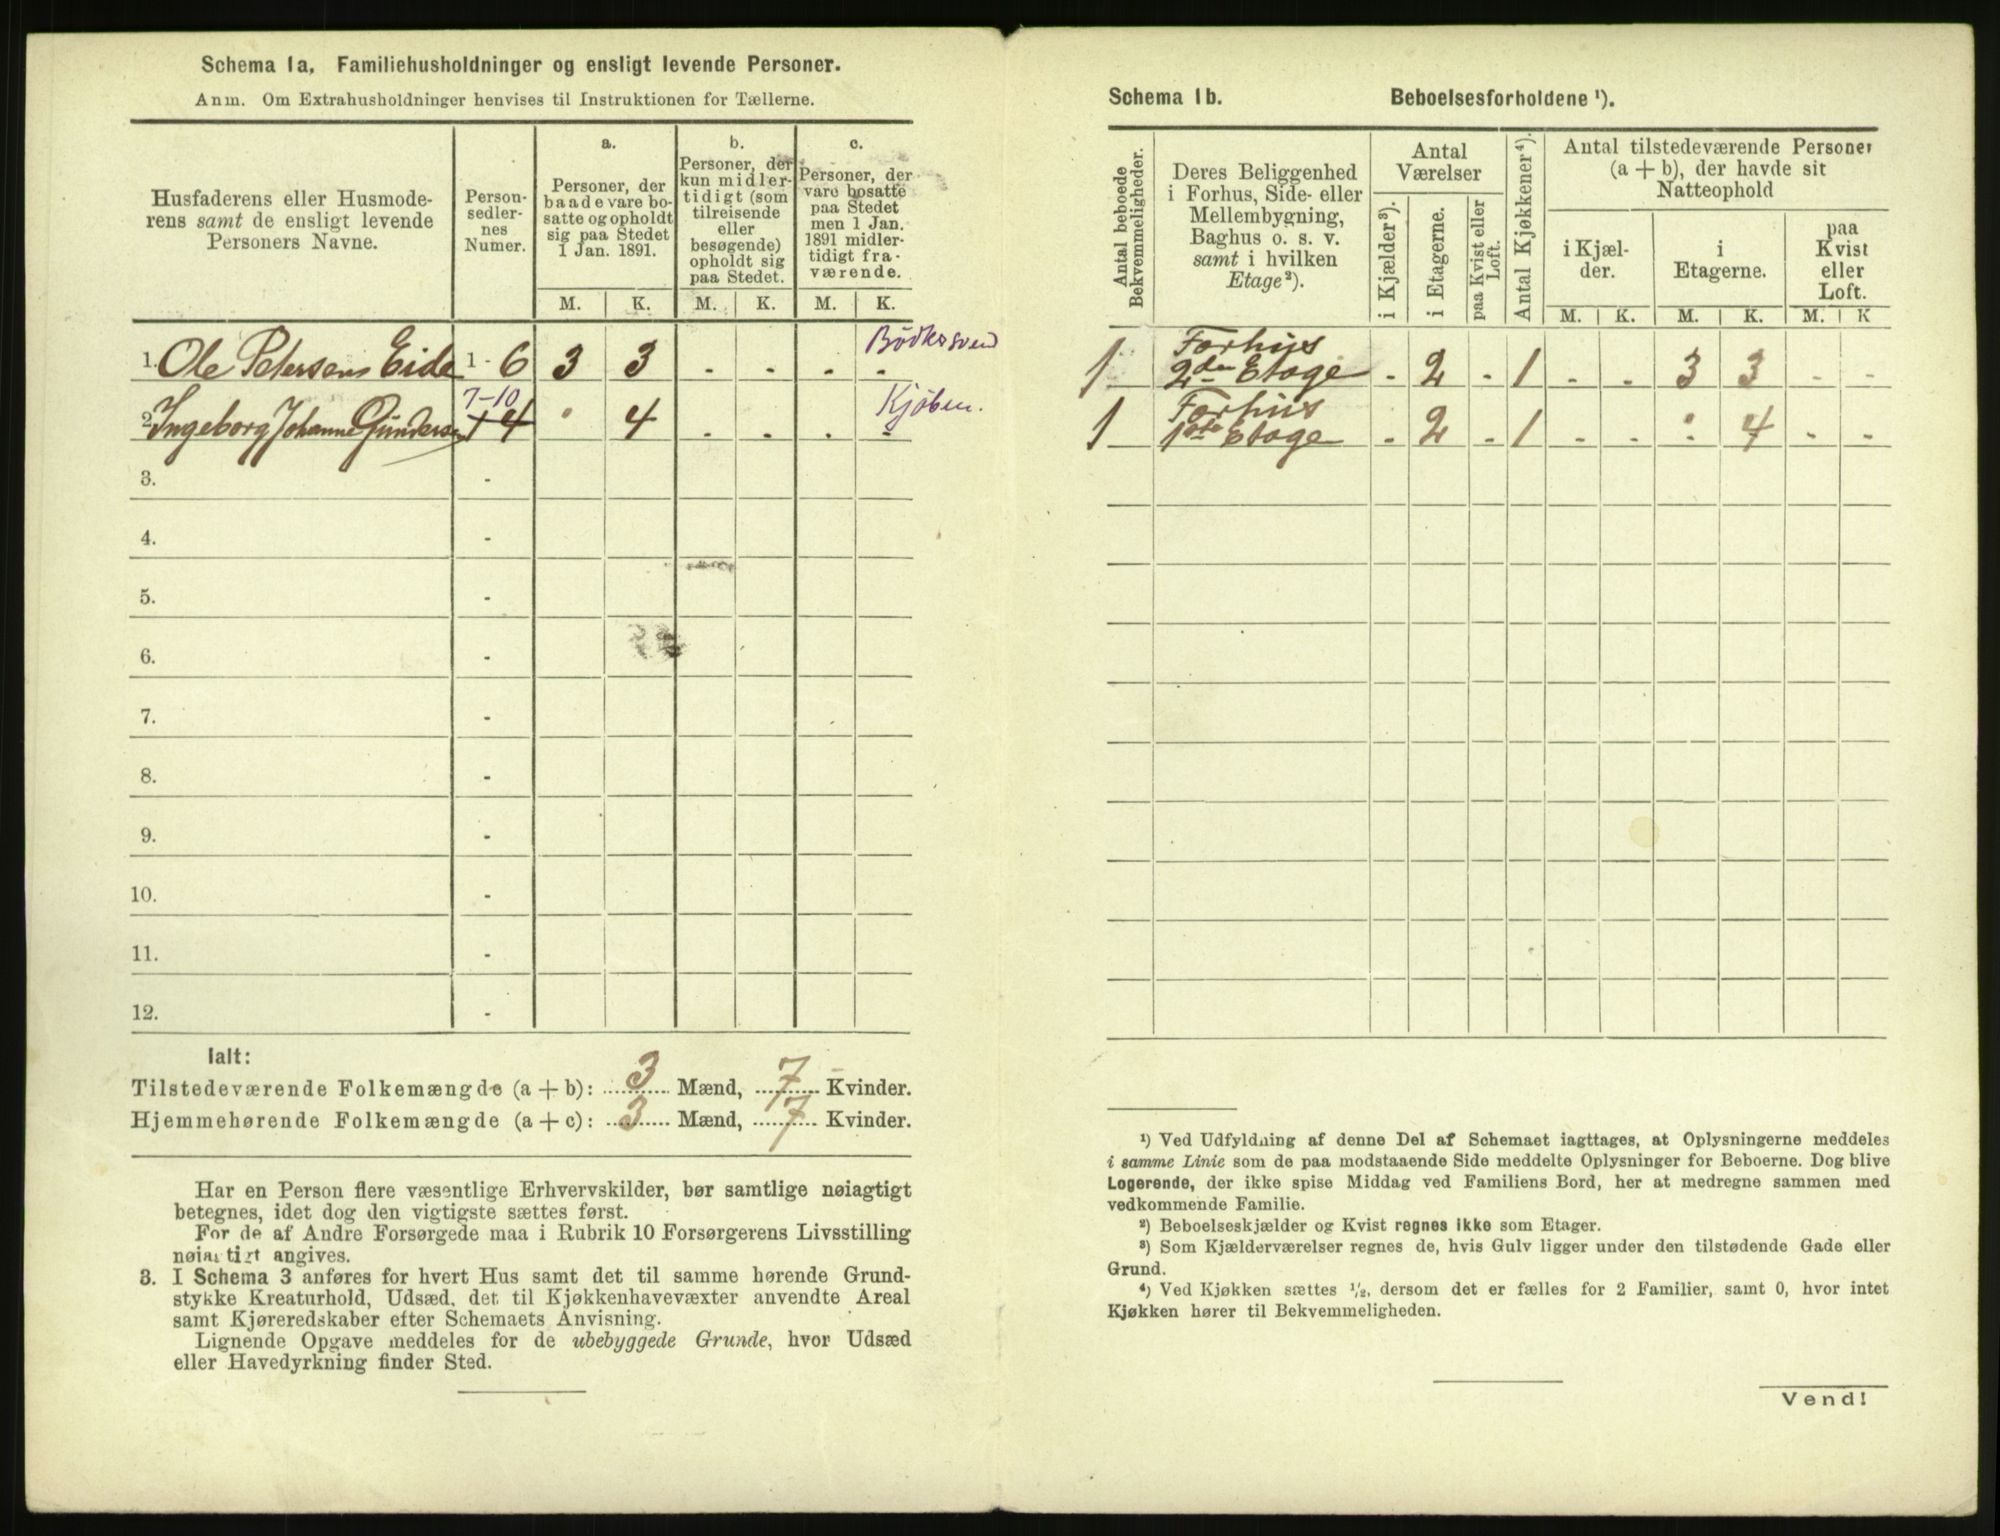 Schema 1a, Familiehusholdninger og ensligt levende Personer.
Anm. Om Extrahusholdninger henvises til Instruktionen for Tællerne.
Husfaderens eller Husmode-
rens samt de ensligt levende
Personers Navne.
Person-
sedler-
nes
Numer.
a.
Personer, der
baade vare bo-
satte og opholdt
sig paa Stedet
1 Jan. 1891.
b.
Personer, der
kun midler-
tidigt (som
tilreisende
eller
besøgende)
opholdt sig
paa Stedet.
c.
Personer, der
vare bosatte
paa Stedet
men 1 Jan.
1891 midler-
tidigt fra-
værende.
M. K. M. K. M. K.
Bödkersvend
1. Ole Petersens Eide 1 - 6 3 3 - - - -
7-10 Kjøben.
2. Ingeborg Johanne Gunderse 1 4 - 4 - - - -
3. -
4. -
5. -
6. -
7. -
8. -
9. -
10. -
11. -
12. -
Ialt:
Tilstedeværende Folkemængde (a + b): 3 Mænd, 7 Kvinder.
Hjemmehørende Folkemængde (a + c): 3 Mænd, 7 Kvinder.
Har en Person flere væsentlige Erhvervskilder, bør samtlige nøiagtigt
betegnes, idet dog den vigtigste sættes først.
For de af Andre Forsørgede maa i Rubrik 10 Forsørgerens Livsstilling
nøiagtigt angives.
3. I Schema 3 anføres for hvert Hus samt det til samme hørende Grund-
stykke Kreaturhold, Udsæd, det til Kjøkkenhavevæxter anvendte Areal
samt Kjøreredskaber efter Schemaets Anvisning.
Lignende Opgave meddeles for de ubebyggede Grunde, hvor Udsæd
eller Havedyrkning finder Sted.
Schema 1b. Beboelsesforholdene ¹).
Antal beboede
Bekvemmeligheder.
Deres Beliggenhed
i Forhus, Side- eller
Mellembygning,
Baghus o. s. v.
samt i hvilken
Etage²).
Antal
Værelser
i Kjælder³).
i Etagerne.
paa Kvist eller
Loft.
Antal Kjøkkener⁴).
Antal tilstedeværende Personer
(a + b), der havde sit
Natteophold
i Kjæl-
der.
i
Etagerne.
paa
Kvist
eller
Loft.
M. K. M. K. M. K
Forhus
1 2den Etage - 2 - 1 - - 3 3 - -
Forhus
1 1ste Etage - 2 - 1 - - - 4 - -
¹) Ved Udfyldning af denne Del af Schemaet iagttages, at Oplysningerne meddeles
i samme Linie som de paa modstaaende Side meddelte Oplysninger for Beboerne. Dog blive
Logerende, der ikke spise Middag ved Familiens Bord, her at medregne sammen med
vedkommende Familie.
²) Beboelseskjælder og Kvist regnes ikke som Etager.
³) Som Kjælderværelser regnes de, hvis Gulv ligger under den tilstødende Gade eller
Grund.
⁴) Ved Kjøkken sættes ½, dersom det er fælles for 2 Familier, samt 0, hvor intet
Kjøkken hører til Bekvemmeligheden.
Vend!